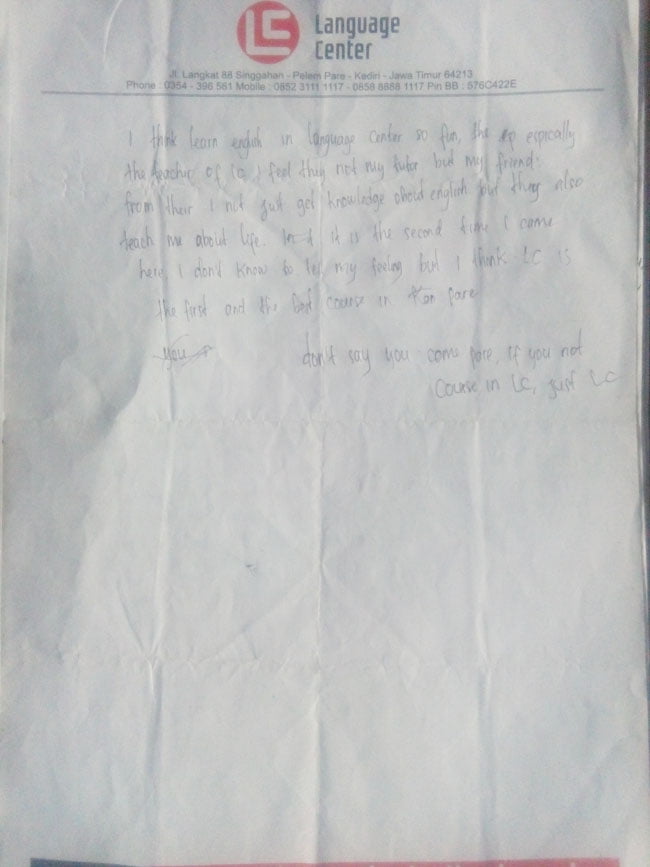 LC
Language
Center
Jl. Langkat 88 Singgahan - Pelem Pare - Kediri - Jawa Timur 64213
Phone : 0354 - 396 561 Mobile : 0852 3111 1117 - 0858 8888 1117 Pin BB : 576C422E
I think learn english in language center so fun, the espically
the teacher of LC, I feel they not my tutor but my friend.
from their I not just get knowledge about english but they also
teach me about life. it is the second time I came
here, I don't know to tell my feeling but I think LC is
the first and the best course in pare
you
don't say you come pare, if you not
course in LC, just LC